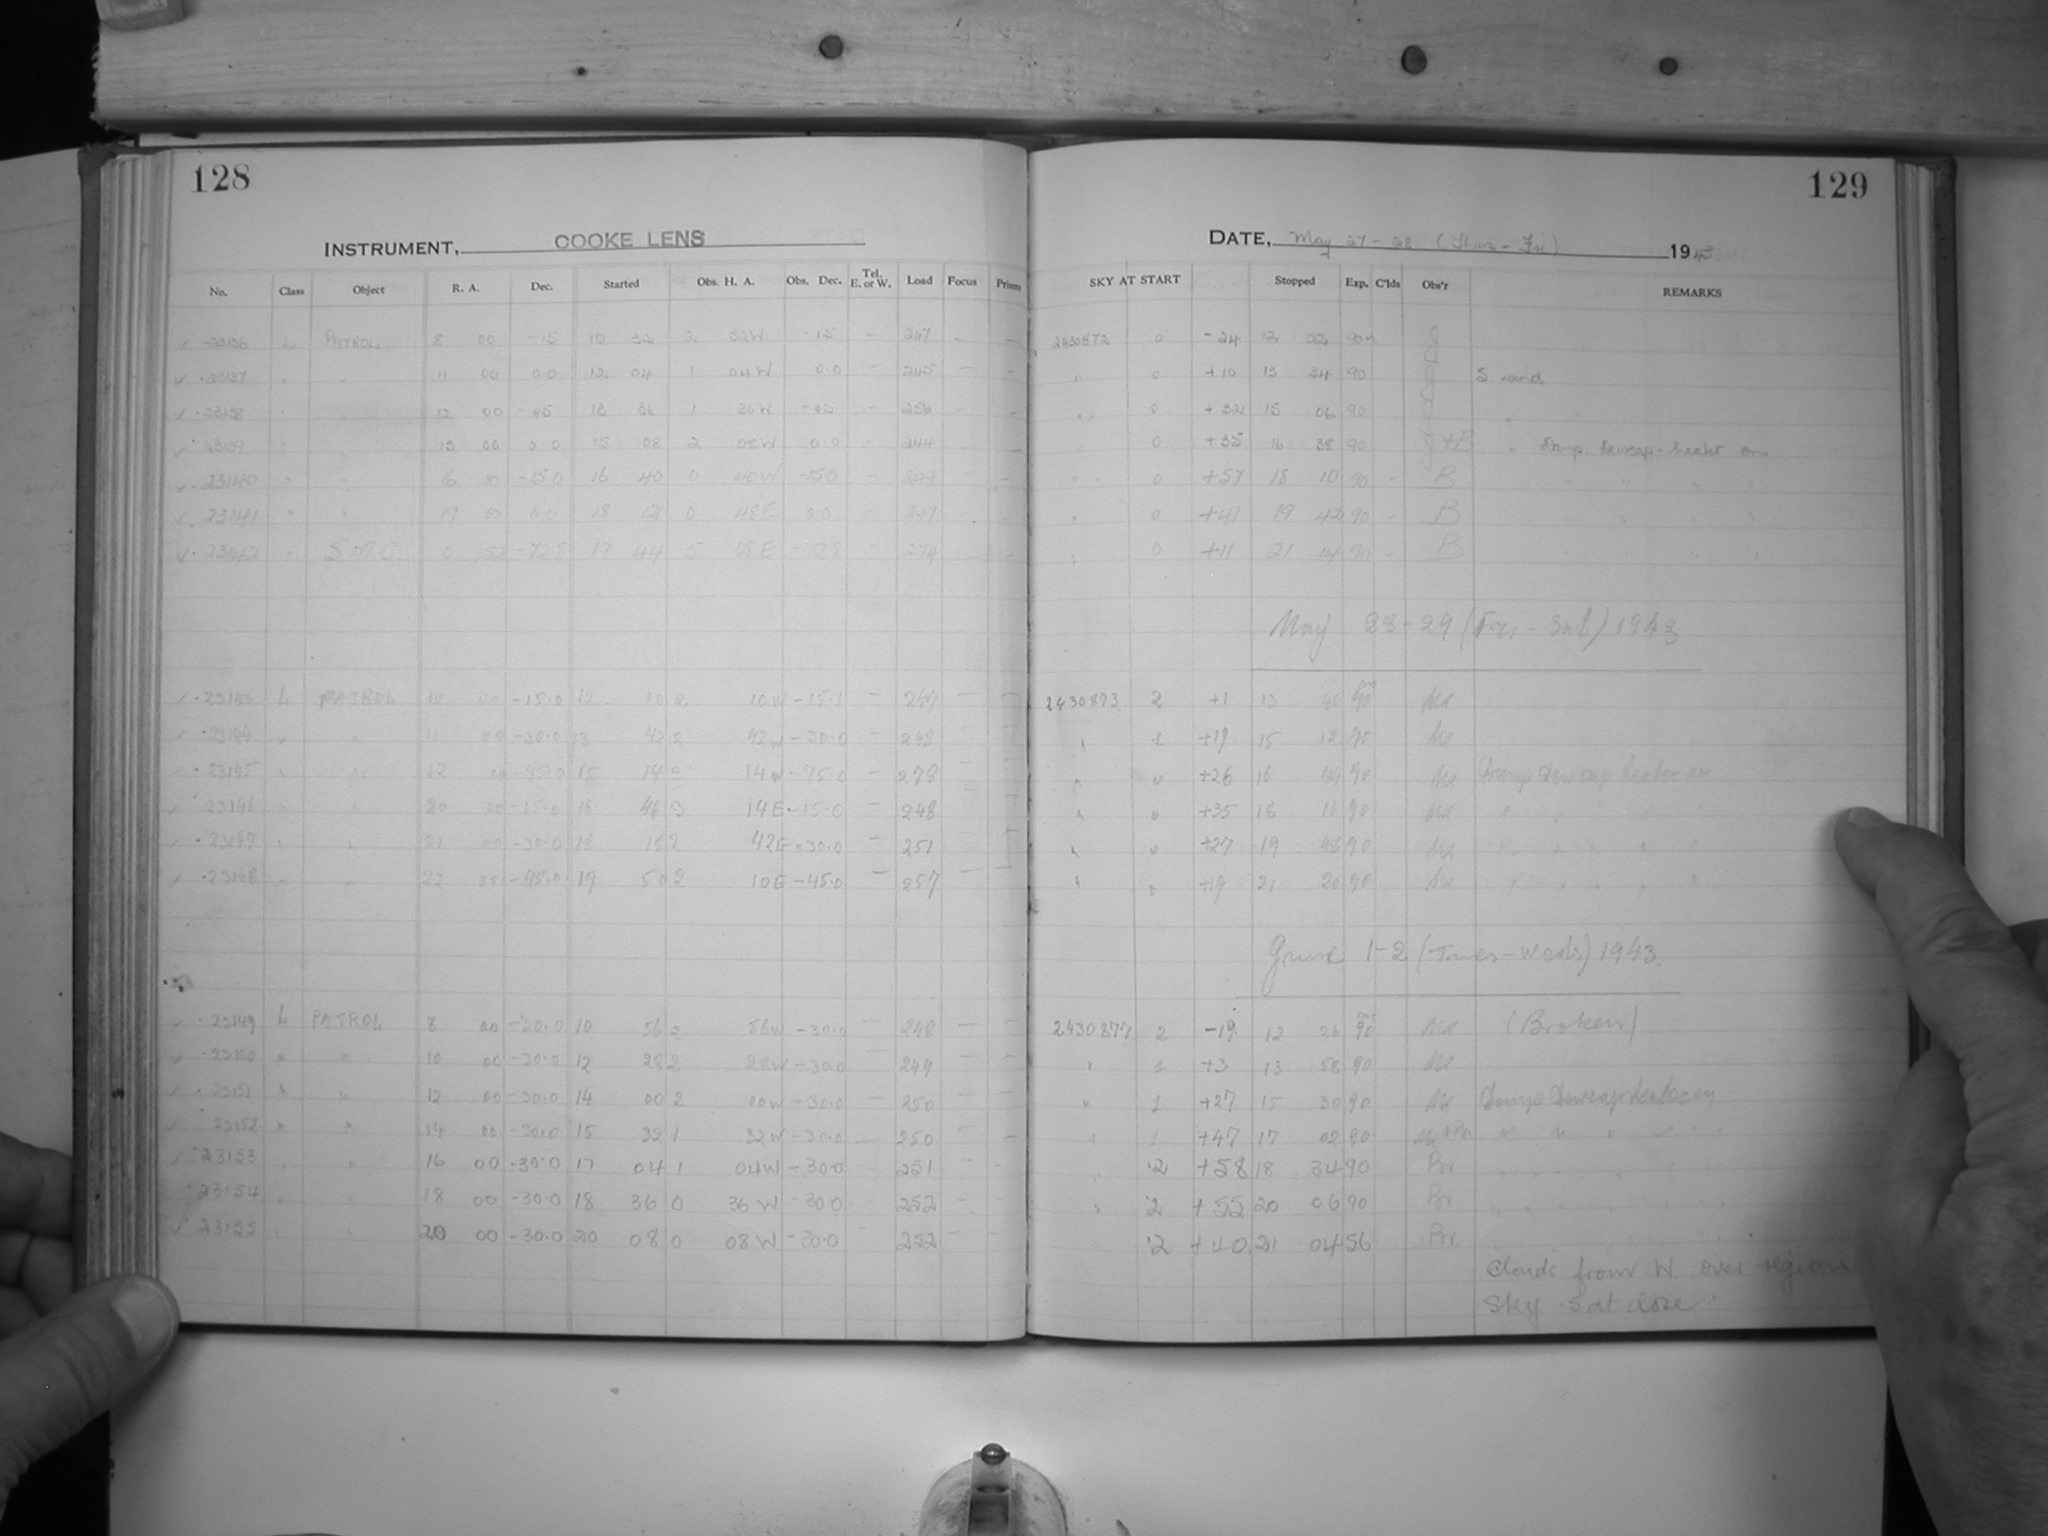 128
INSTRUMENT, COOKE LENS
No. Class Object R. A. Dec. Started Obs. H. A. Obs. Dec. Tel. E. or W. Load Focus Prisms
23136 L PATROL 8 00 -15 10 32 2 32W -15 - 247 - -
23137 " " 11 00 0.0 12 04 1 04W 0.0 - 245 - -
23138 " 12 00 -45 13 36 1 36W -45 - 256 - -
23139 " " 13 00 0.0 15 08 2 08W 0.0 - 244 - -
23140 " " 16 00 -15.0 16 40 0 40W -15.0 - 249 -
23141 " " 19 00 0.0 18 12 0 48E 0.0 - 247 - -
23142 " S.M.C. 0 52 -72.8 19 44 5 08E -72.8 - 274 - -
23143 L PATROL 10 00 -15.0 12 10 2 10W -15.1 - 247 - -
23144 " " 11 00 -30.0 13 42 2 42W -30.0 - 248 - -
23145 " " 12 00 -75.0 15 14 3 14W -75.0 - 278 - -
23146 " " 20 00 -15.0 16 46 3 14E -15.0 - 248 - -
23147 " " 21 00 -30.0 18 18 2 42E -30.0 - 251 - -
23148 " " 22 00 -45.0 19 50 2 10E -45.0 - 257 - -
23149 L PATROL 8 00 -30.0 10 56 2 56W -30.0 - 248 - -
23150 " " 10 00 -30.0 12 28 2 28W -30.0 - 249 - -
23151 " " 12 00 -30.0 14 00 2 00W -30.0 - 250 - -
23152 " " 14 00 -30.0 15 32 1 32W -30.0 - 250 - -
23153 " " 16 00 -30.0 17 04 1 04W -30.0 - 251 - -
23154 " " 18 00 -30.0 18 36 0 36W -30.0 - 252 - -
23155 " " 20 00 -30.0 20 08 0 08W -30.0 - 252 - -
129
DATE, May 27-28 (Thurs-Fri) 1943
SKY AT START Stopped Exp. C'lds Obs'r REMARKS
2430872 0 -24 12 02 90m
" 0 +10 13 34 90 S. wind
" 0 +32 15 06 90 "
0 +35 16 38 90 " Damp. Dewcap-heater on
" 0 +57 18 10 90 - B " " " "
" 0 +41 19 42 90 - B " " " "
" 0 +11 21 14 90 - B " " " "
May 28-29 (Fri-Sat) 1943
2430873 2 +1 13 40 90m
" 1 +19 15 12 90
" 0 +26 16 44 90 Damp Dewcap heater on
" 0 +35 18 16 90 " " " "
" 0 +27 19 48 90 " " " "
" 0 +19 21 20 90 " " " "
June 1-2 (Tues-Weds) 1943.
2430877 2 -19 12 26 90m (Broken)
" 1 +3 13 58 90
" 1 +27 15 30 90 Damp Dewcap heater on
" 1 +47 17 02 90 " " " "
" 2 +58 18 34 90 Br. " " " "
" 2 +55 20 06 90 Br. " " " "
2 +40 21 04 56 Br. " " " "
Clouds from W. over region
Sky 5 at close.